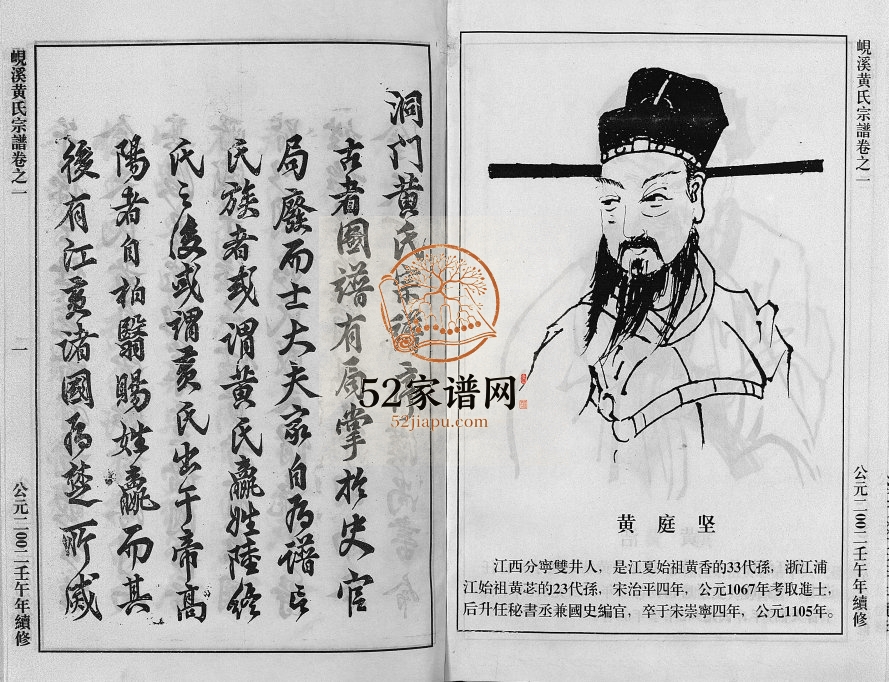 峴溪黄氏宗譜卷之一
公元二00二壬午年續修
黄庭坚
江西分寧雙井人，是江夏始祖黄香的33代孫，浙江浦
江始祖黄苾的23代孫，宋治平四年，公元1067年考取進士，
后升任秘書丞兼國史編官，卒于宋崇寧四年，公元1105年。
洞门黄氏宗譜序
古者圖譜有局掌於史官
局廢而士大夫家自为譜
氏族者或谓黄氏嬴姓陸終
氏之後或谓黄氏出于帝高
陽者自柏翳賜姓嬴而其
後有江黄诸國为楚所滅
峴溪黄氏宗譜卷之一
一
公元二00二壬午年續修
52家谱网
52jiapu.com